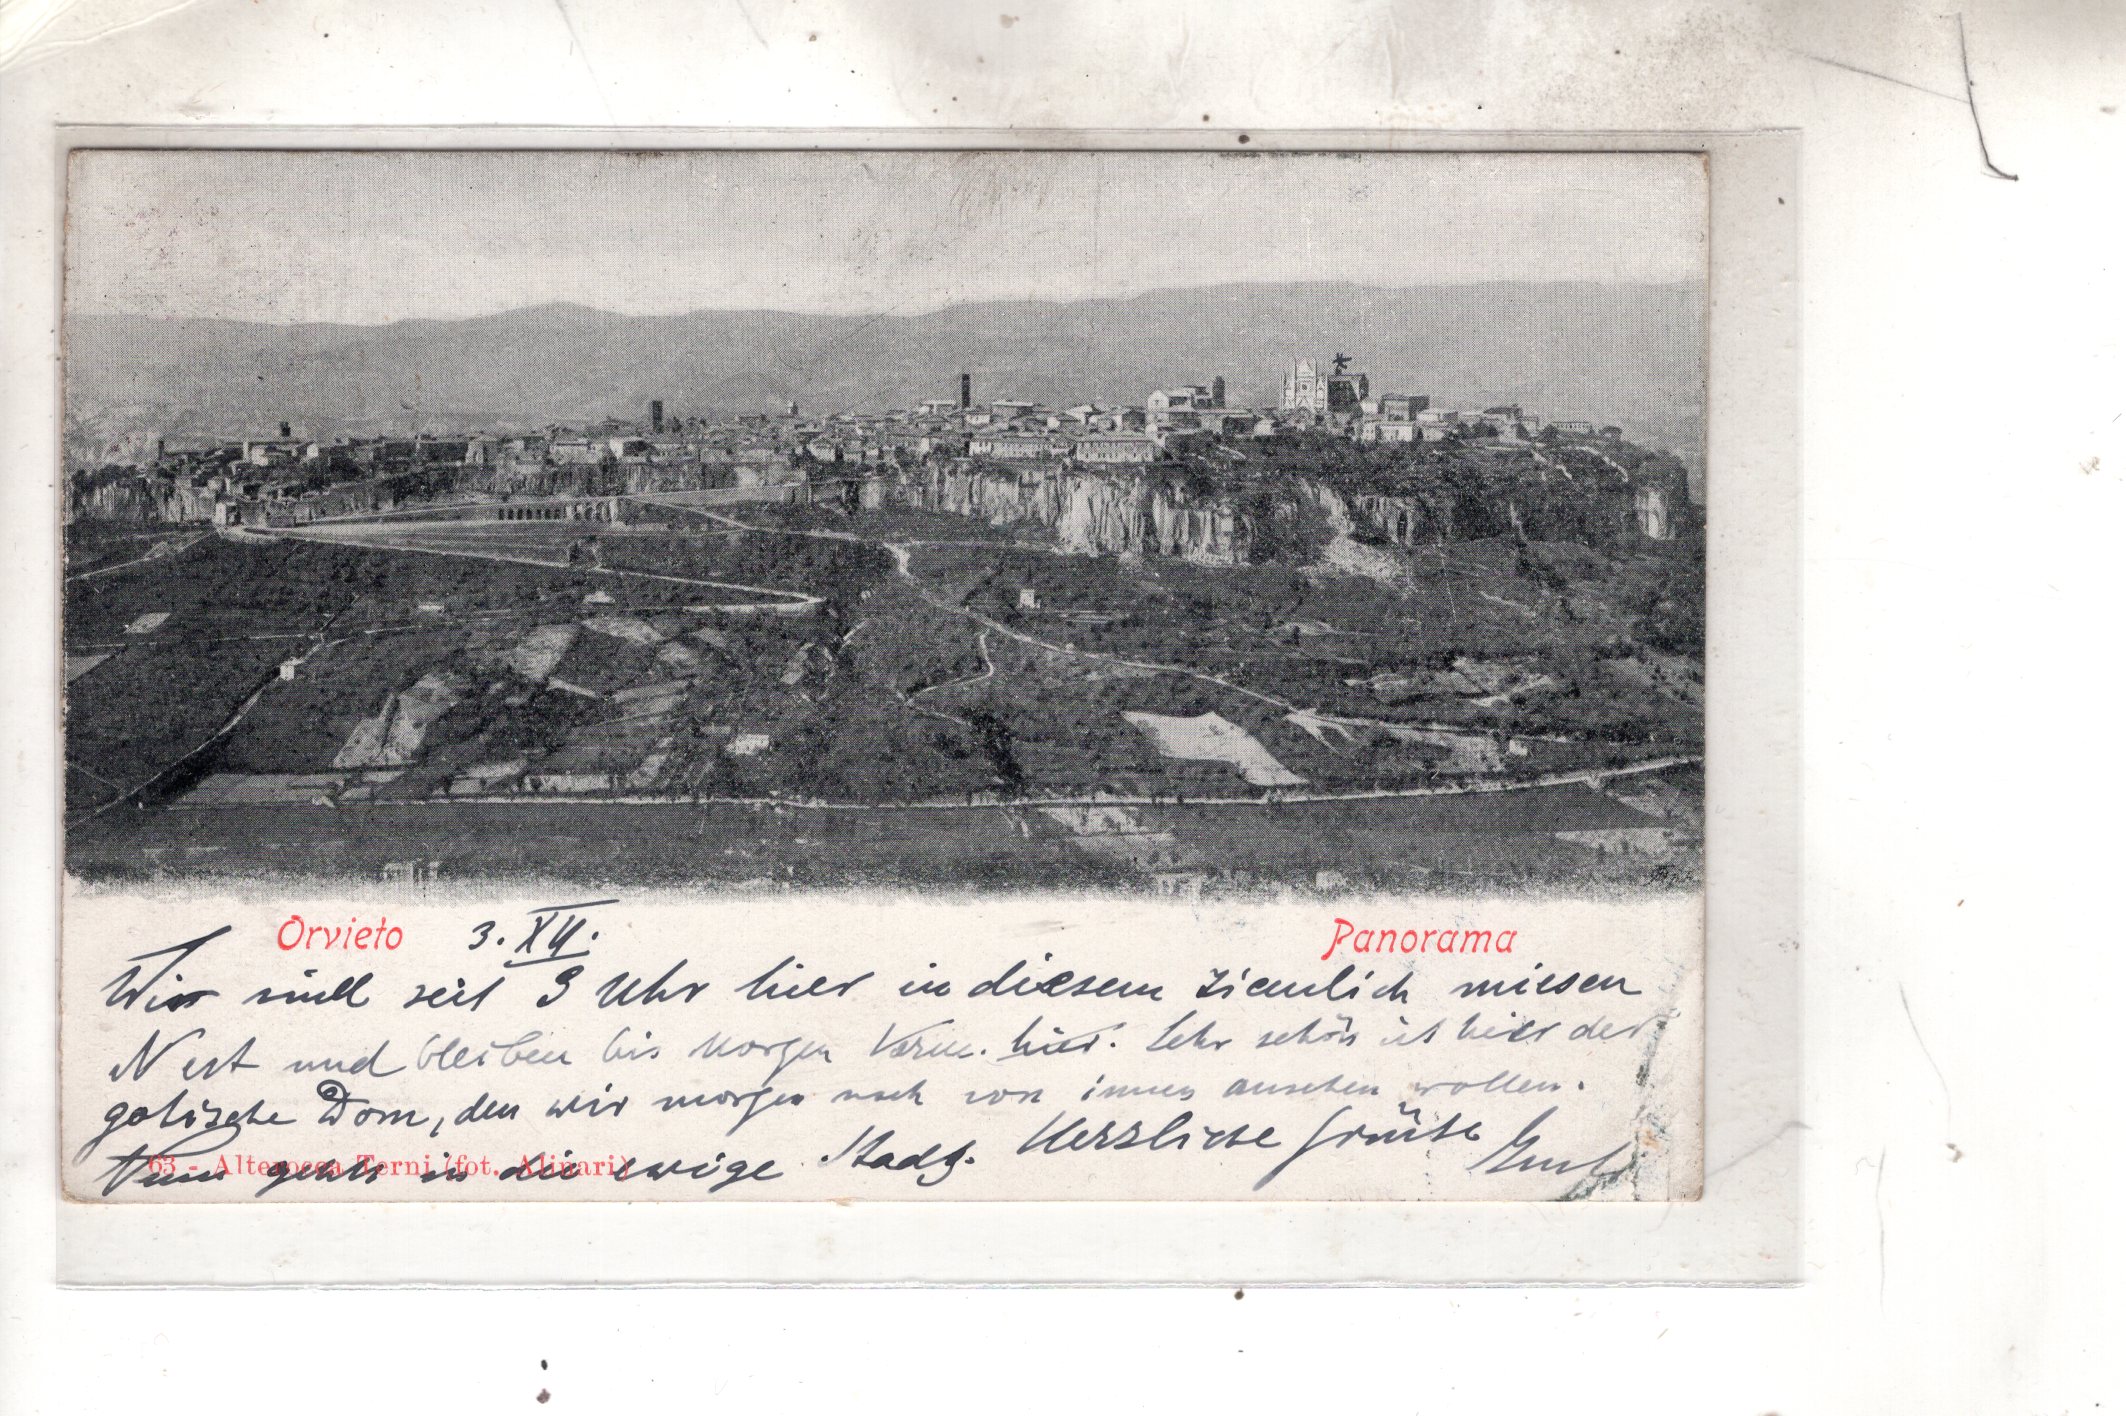 Orvieto 3. XII. Panorama
Wir sind seit 3 Uhr hier in diesem ziemlich miesen
Nest und bleiben bis morgen Vorm. hier. Sehr schön ist hier der
gotische Dom, den wir morgen noch von innen ansehen wollen.
Nun gehts in die ewige Stadt. Herzliche Grüße
63 - Alterocca Terni (fot. Alinari)